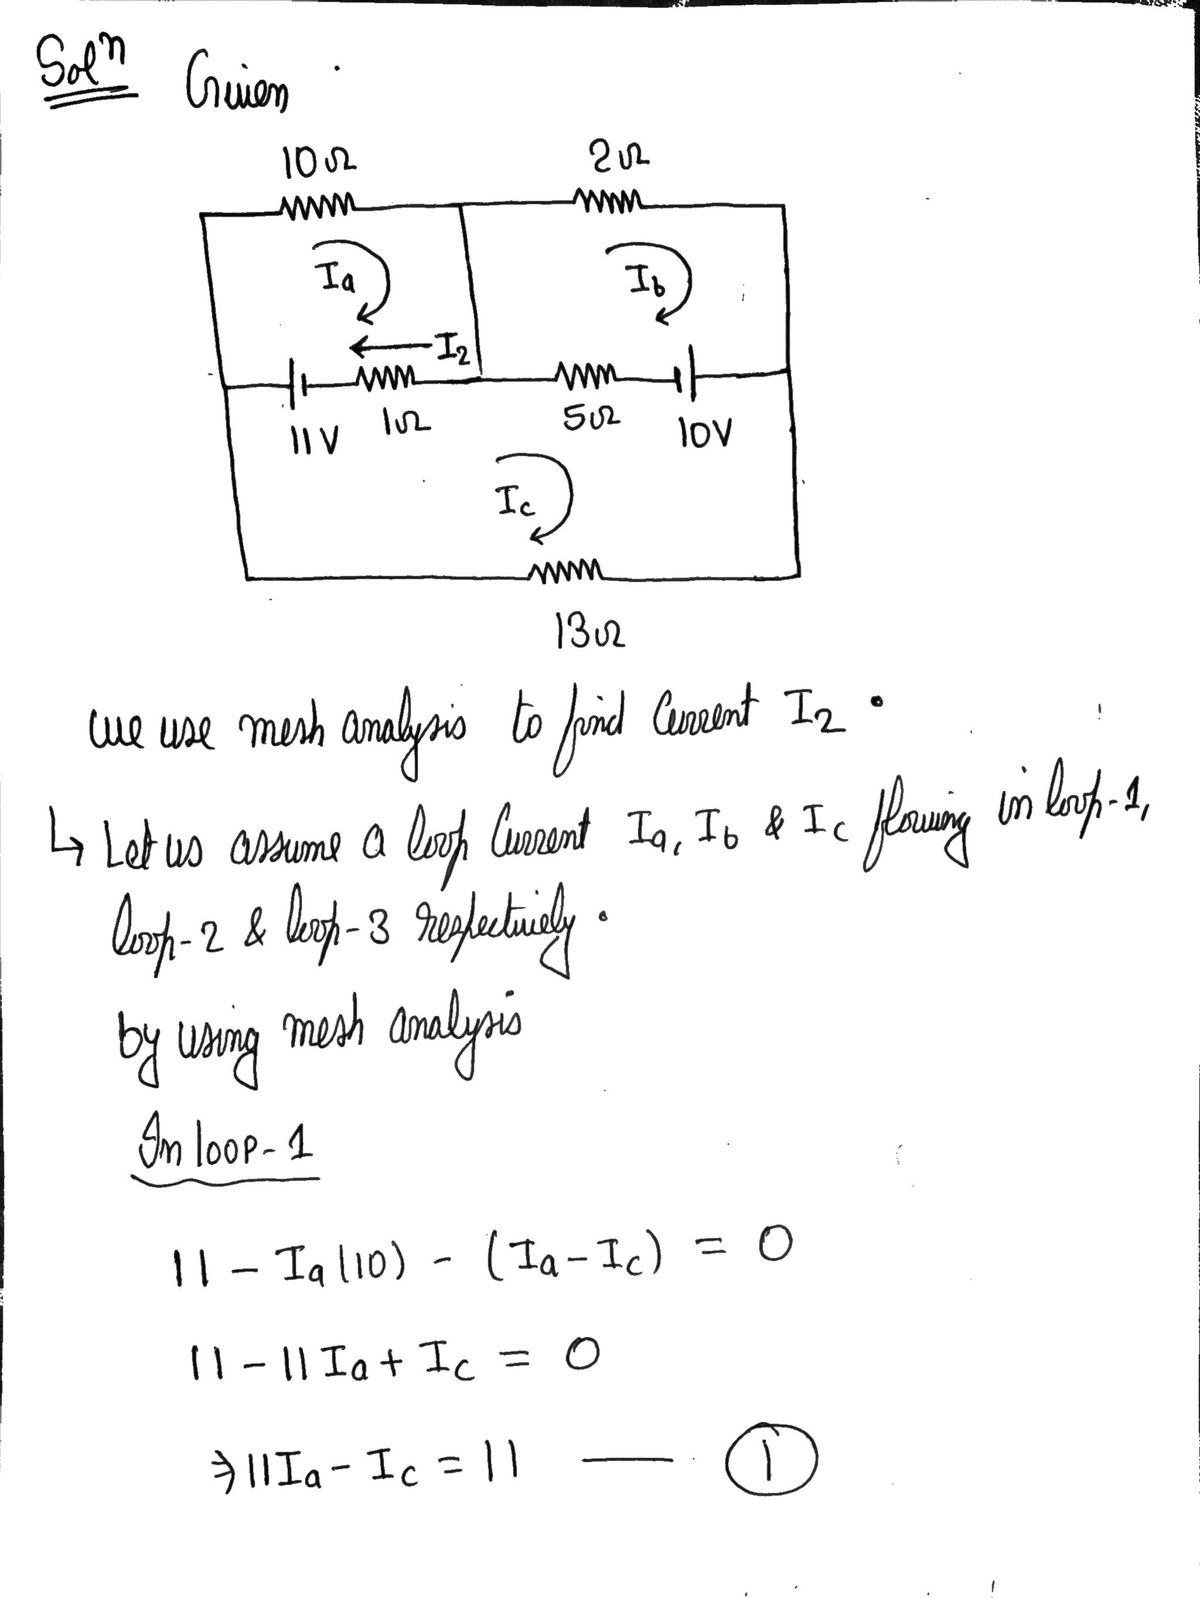 Solⁿ Given
10Ω 2Ω
Ia Ib
I2
11V 1Ω 5Ω 10V
Ic
13Ω
we use mesh analysis to find Current I2.
↳ Let us assume a loop Current Ia, Ib & Ic flowing in loop-1,
loop-2 & loop-3 respectively.
by using mesh analysis
In loop-1
11 - Ia(10) - (Ia-Ic) = 0
11 - 11Ia + Ic = 0
⇒ 11Ia - Ic = 11 — 1